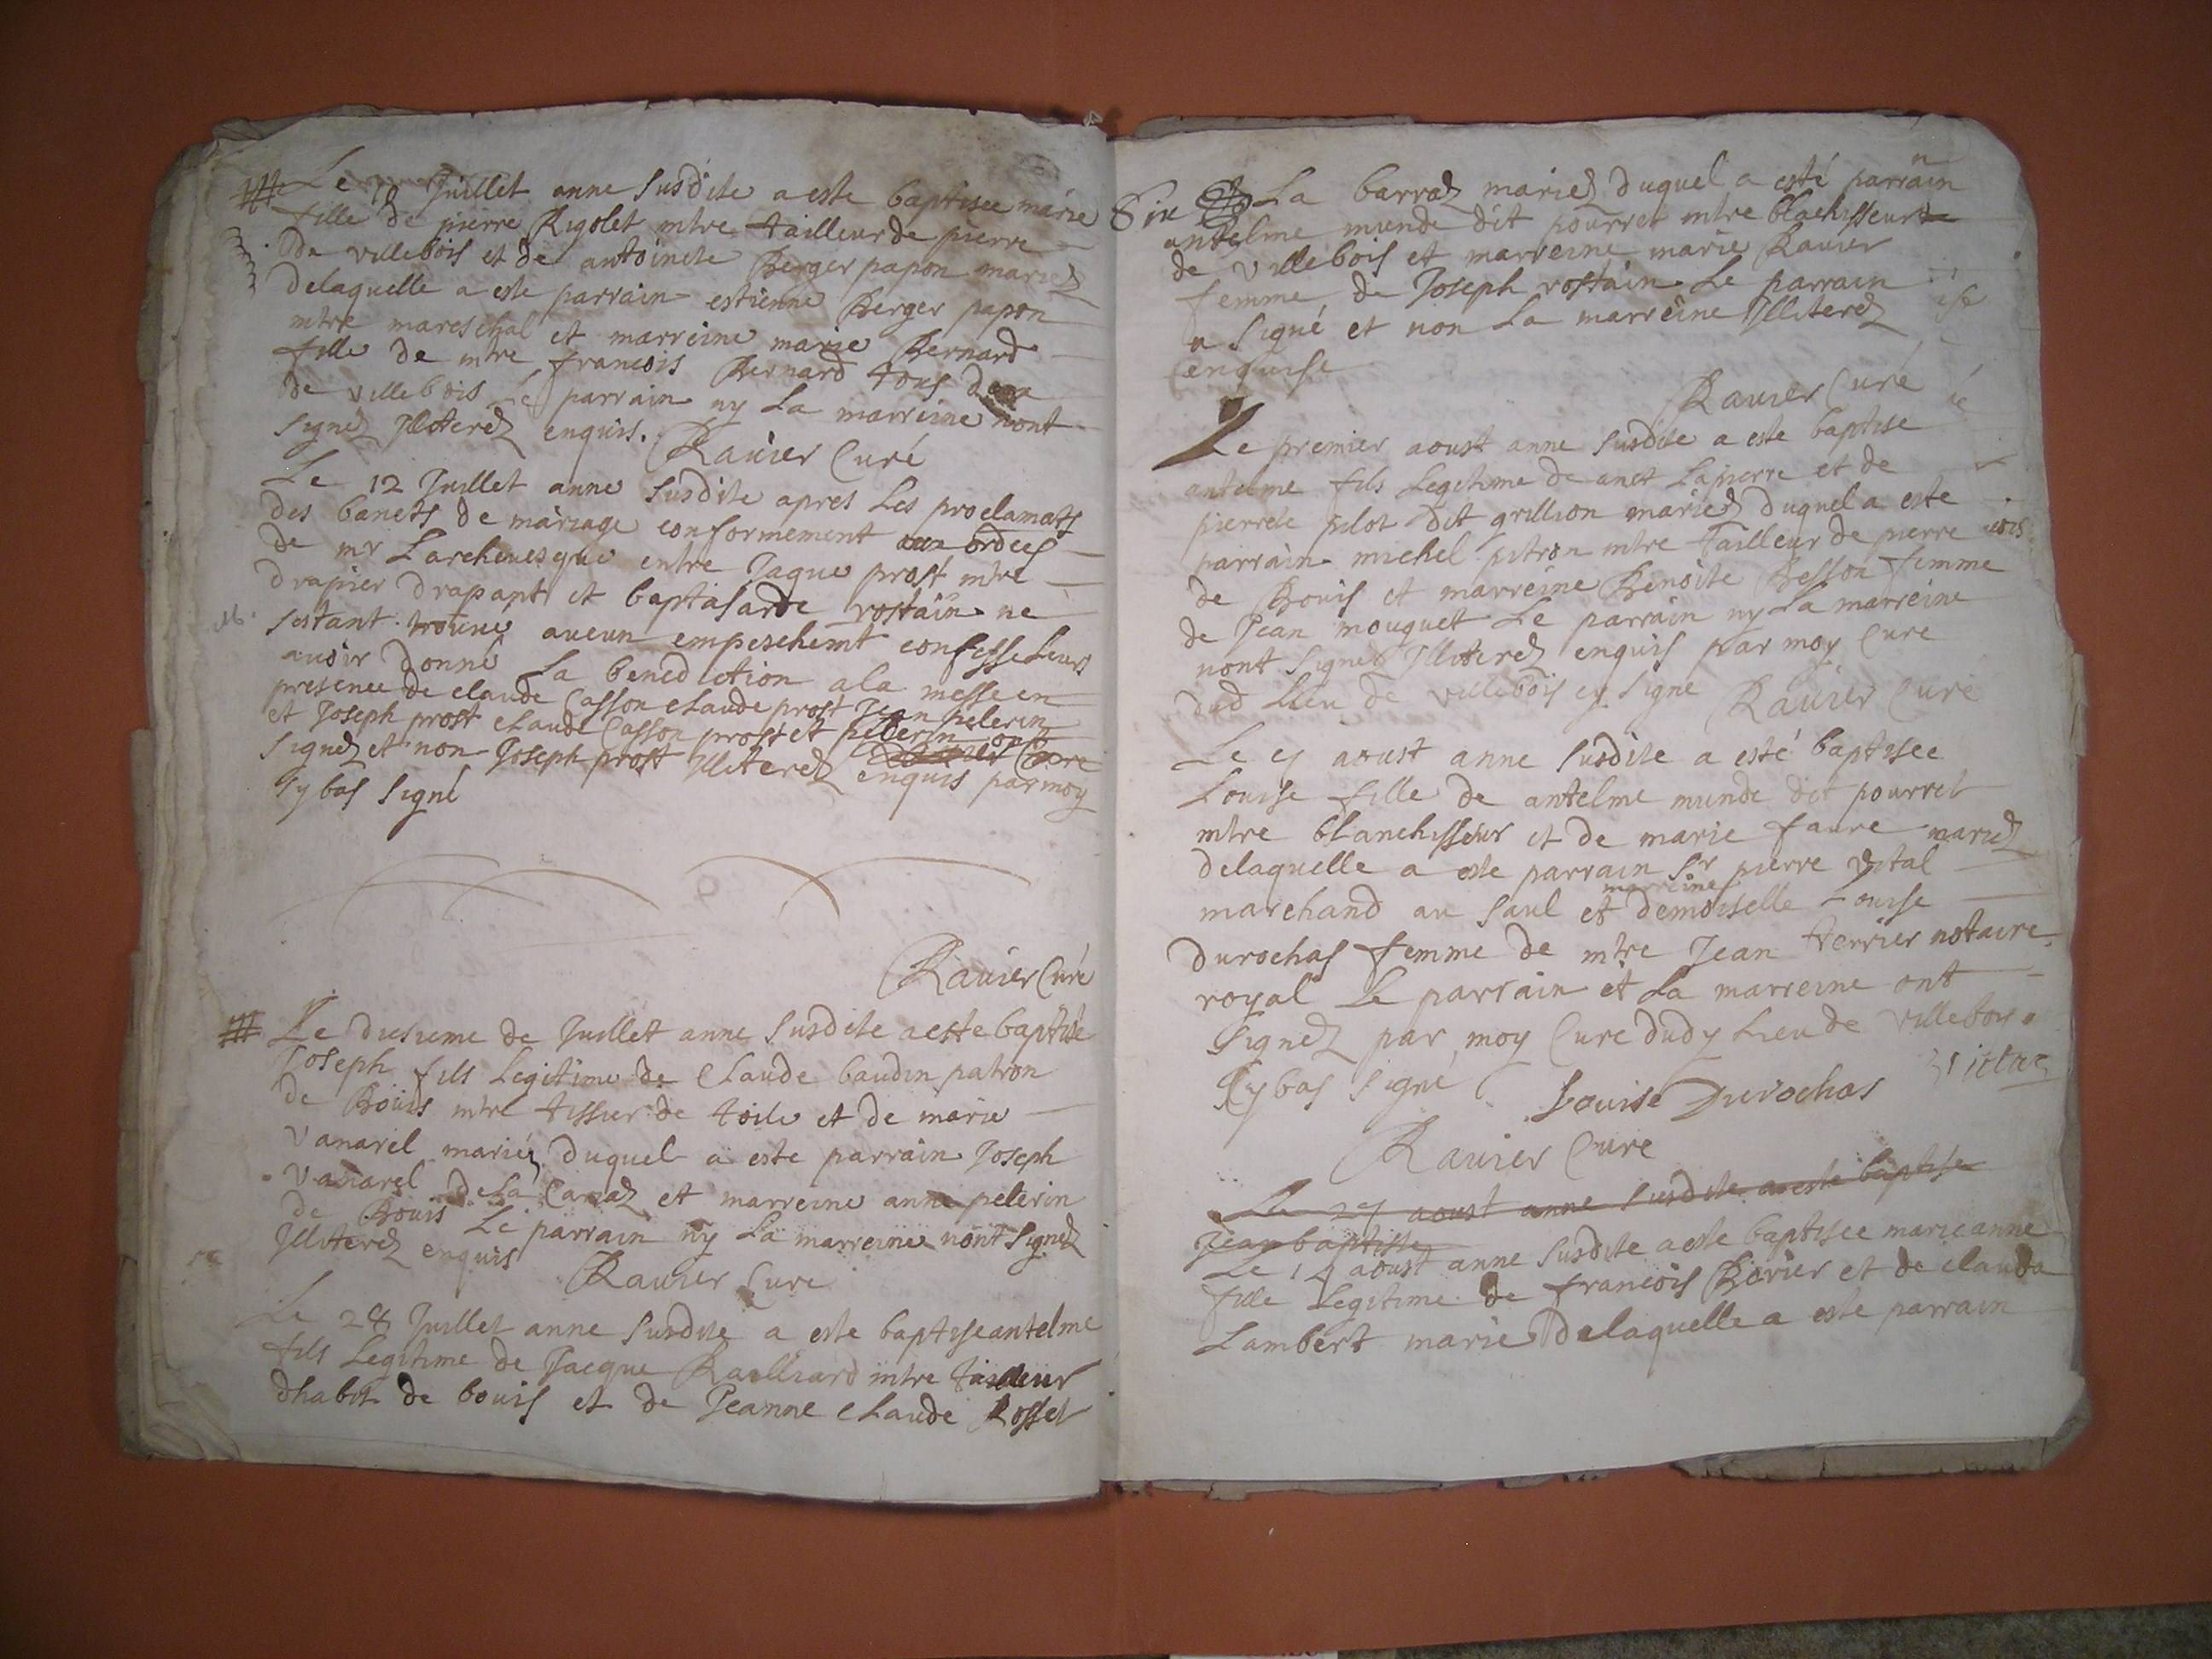 Le 10 Juillet anne susdite a este baptisee marie
fille de pierre Rigolet mtre tailleur de pierre
de villebois et de antoinete Berger papon mariez
delaquelle a este parrain estienne Berger papon
mtre mareschal et marreine marie Bernard
fille de mtre francois Bernard tous deux
de villebois Le parrain ny La marreine nont
signez Jlliterez enquis. Ravier Curé
Le 12 Juillet anne susdite apres Les proclamats
des banets de mariage conformement aux ordces
de mr Larchevesque entre Jaque prost mtre
drapier drapant et baptasarde rostain ne
sestant trouve aucun empeschemt confesse Leurs
avoir donné La benediction a la messe en
presence de claude Casson claude prost Jean pelerin
et Joseph prost claude Casson prost et pelerin ont
signez et non Joseph prost Jlliterez enquis par moy
sy bas signé
Ravier Curé
Le diesieme de Juillet anne susdite a este baptisé
Joseph fils Legitime de Claude baudin patron
de Bouis mtre tissier de toile et de marie
vanarel mariez duquel a este parrain Joseph
vanarel de La Carraz et marreine anne pelerin
de Bouis Le parrain ny La marreine nont signez
Jlliterez enquis Ravier Cure
Le 28 Juillet anne susdite a este baptise antelme
fils Legitime de Jacque Railliard mtre tailleur
dhabit de bouis et de Jeanne claude Rosset
La barraz mariez duquel a esté parrain
antelme munde dit pourret mtre blachisseur
de villebois et marreine marie Ravier
femme de Joseph rostain Le parrain
a signé et non La marreine Jlliterez
enquise
Ravier Curé
Le premier aoust anne susdite a este baptise
antelme fils Legitime de anet Lapierre et de
pierrete pilot dit grillion mariez duquel a este
parrain michel pitron mtre tailleur de pierre
de Bouis et marreine Benoite Besson femme
de Jean mouquet Le parrain ny La marreine
nont signez Jlliterez enquis par moy Cure
dud Lieu de villebois cy signe Ravier Cure
Le ej aoust anne susdite a esté baptisee
Louise fille de antelme munde dit pourret
mtre blanchisseur et de marie faure mariez
delaquelle a este parrain Sr pierre vital
marchand au saul et marreine demoiselle Louise
durochas femme de mtre Jean terrier notaire
royal Le parrain et La marreine ont
signez par moy Cure dudy Lieu de villebois
sy bas signé Louise Durochas
Ravier Cure
Le 27 aoust anne susdite a este baptise
Jean baptiste
Le 14 aoust anne susdite a este baptisee marie anne
fille Legitime de francois Borier et de clauda
Lambert mariez delaquelle a este parrain